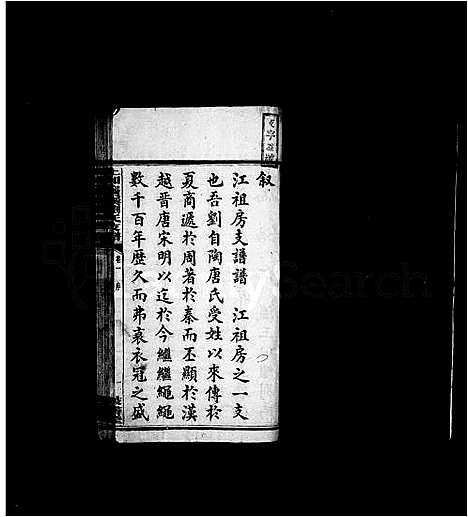 叙
江祖房支譜譜 江祖房之一支
也吾劉自陶唐氏受姓以來傳於
夏商遞於周著於秦而丕顯於漢
越晉唐宋明以迄於今繼繼繩繩
數千百年歷久而弗衰衣冠之盛
卷一